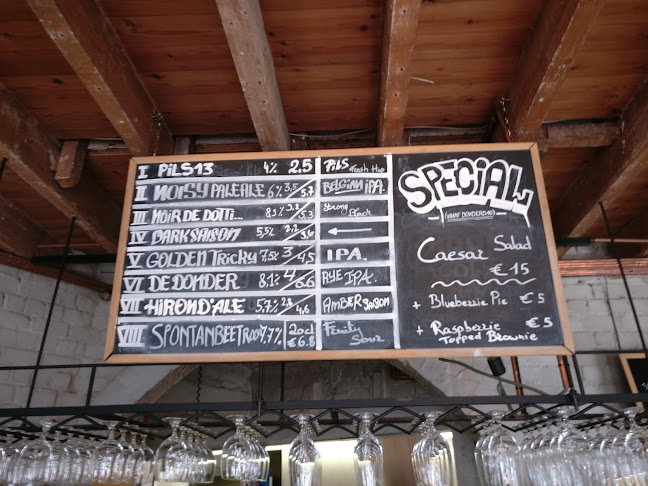 I PILS13 4% 2.5 PILS Tooth Hop
II NOISY PALE ALE 6% 3,5/5.7 BELGIAN IPA
III NOIR DE DOTTI... 8,5% 3,2/5.3 Strong Black
IV DARK SAISON 5,5% ←
V GOLDEN TRICKY 7,5% 3/4,5 IPA.
VI DE DONDER 8.1% 4/6.6 RYE IPA.
VII HIROND'ALE 5.7% 2,8/4,6 AMBER SAISON
VIII SPONTANBEETROOT 7,7% 20cl €6.5 Fruity Sour
SPECIAL
(VANAF DONDERDAG)
Caesar Salad
€ 15
+ Blueberrie Pie € 5
+ Raspberrie € 5
Topped Brownie